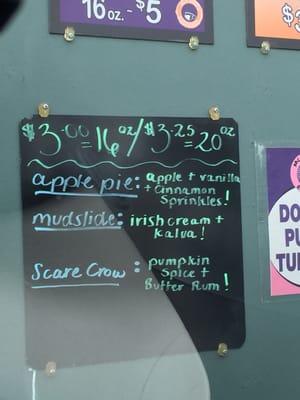 16 oz. - $5
$3.00 = 16 oz / $3.25 = 20 oz
apple pie: apple + vanilla
+ Cinnamon
Sprinkles!
mudslide: irish cream +
kalua!
Scare Crow: pumpkin
Spice +
Butter Rum!
DO
PU
TU